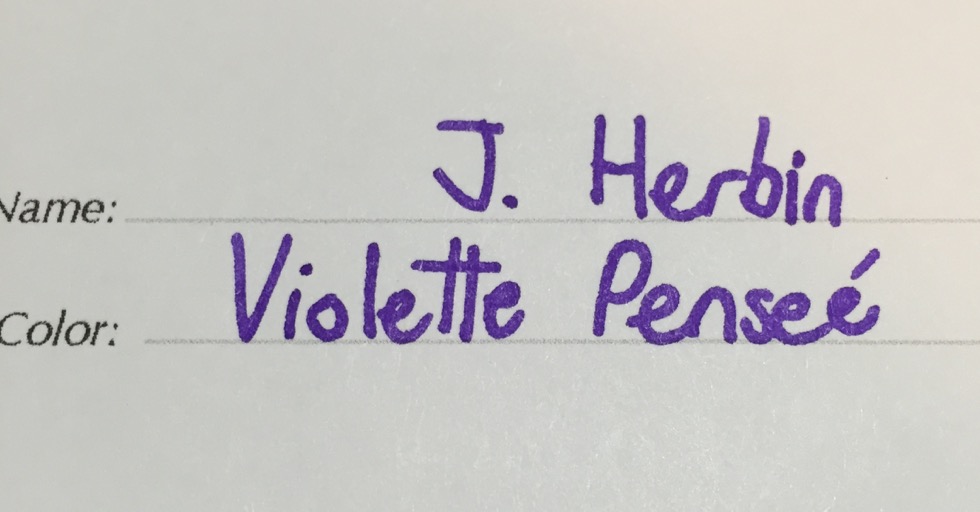 Name: J. Herbin
Color: Violette Penseé